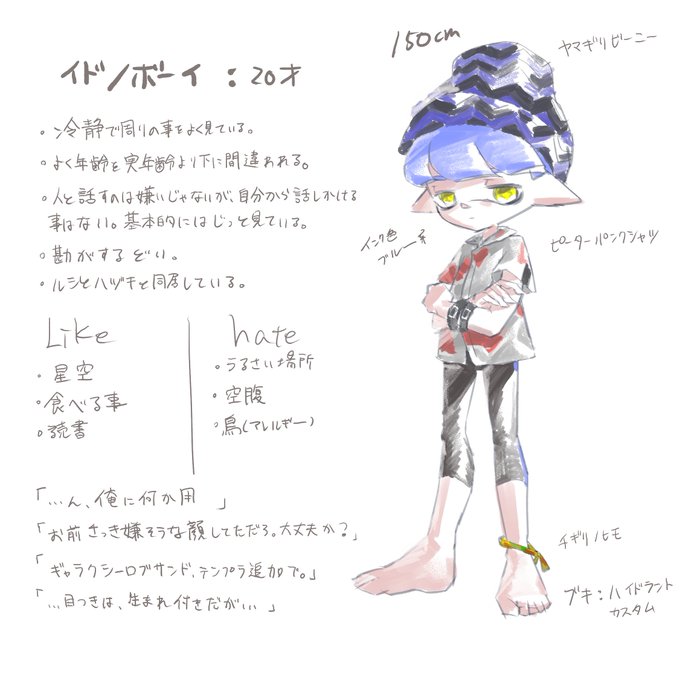 イドノボーイ : 20才
・冷静で周りの事をよく見ている。
・よく年齢を実年齢より下に間違われる。
・人と話すのは嫌いじゃないが、自分から話しかける
事はない。基本的にはじっと見ている。
・勘がするどい。
・ルシとハヅキと同居している。
Like
・星空
・食べる事
・読書
hate
・うるさい場所
・空腹
・鳥(アレルギー)
「…ん、俺に何か用 」
「お前さっき嫌そうな顔してただろ。大丈夫か?」
「ギャラクシーロブサンド、テンプラ追加で。」
「…目つきは、生まれ付きだが…」
150cm
ヤマギリビーニー
インク色
ブルー系
ピーターパンクシャツ
チギリノヒモ
ブキ:ハイドラント
カスタム